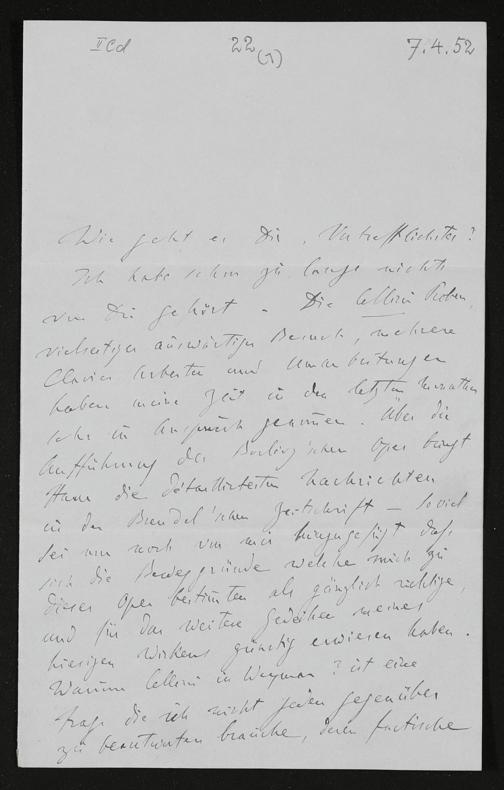 II Cd 22 (1) 7.4.52
Wie geht es Dir, Vortrefflichster?
Ich habe schon zu lange nichts
von Dir gehört – Die Cellini Proben,
vielseitiger auswärtiger Besuch, mehrere
Clavier Arbeiten und Umarbeitungen
haben meine Zeit in den letzten Monathen
sehr in Anspruch genommen. Über die
Aufführung der Berlioz'schen Oper bringt
die détaillirtesten Nachrichten
in der Brendel'schen Zeitschrift – Soviel
sei nur noch von mir hinzugefügt dass
sich die Beweggründe welche mich zu
dieser Oper bestimten als gänzlich richtige,
und für das weitere Gedeihen meines
hiesigen Wirkens günstig erwiesen haben.
Warum Cellini in Weymar? ist eine
Frage die ich nicht jedem gegenüber
zu beantworten brauche, deren factische